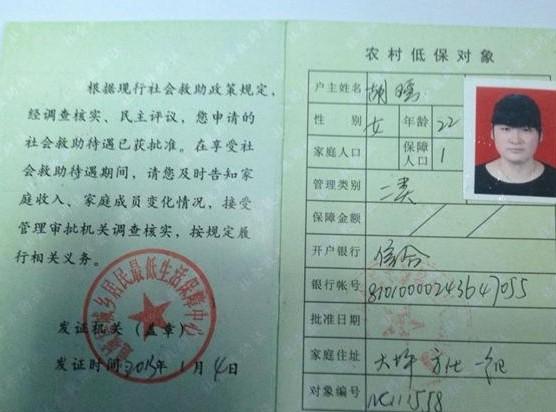 根据现行社会救助政策规定，
经调查核实、民主评议，您申请的
社会救助待遇已获批准。在享受社
会救助待遇期间，请您及时告知家
庭收入、家庭成员变化情况，接受
管理审批机关调查核实，按规定履
行相关义务。
城乡居民最低生活保障中心
发证机关（盖章）
发证时间：2015年1月4日
农村低保对象
户主姓名 胡
性别 女 年龄 22
家庭人口 保障人口 1
管理类别 二类
保障金额
开户银行 信合
银行帐号 81010000243647055
批准日期
家庭住址 大坪 一组
对象编号 NC111558